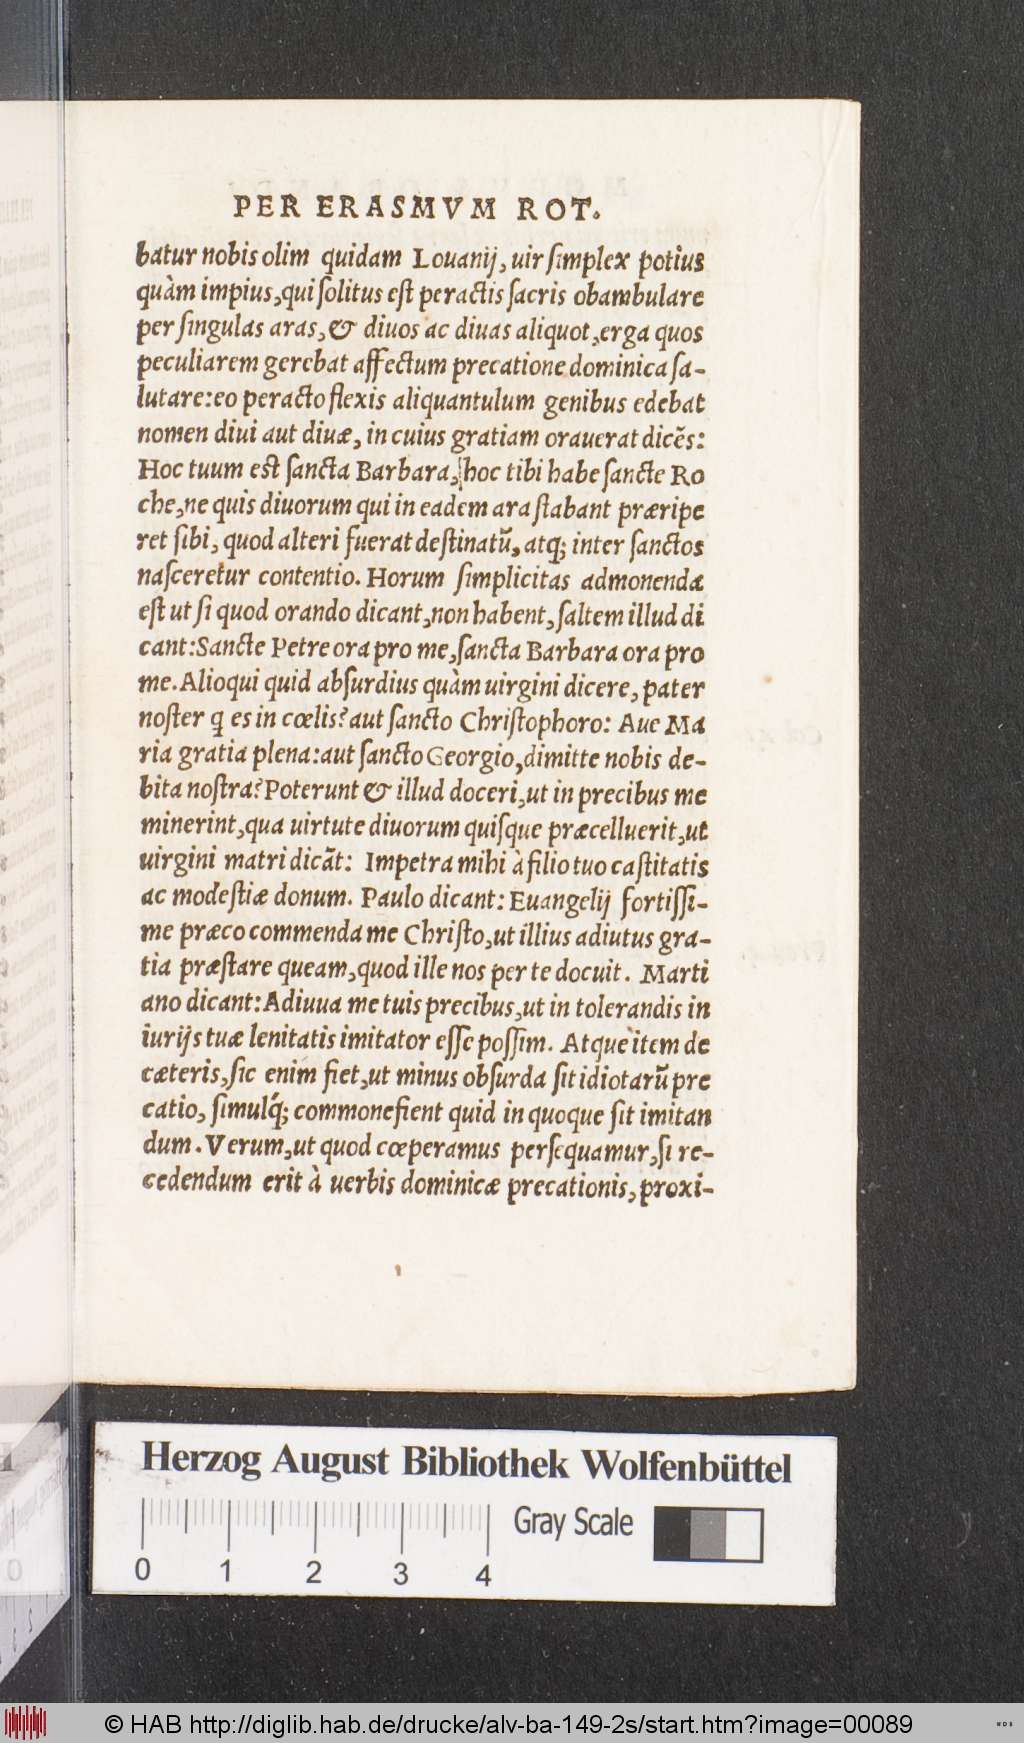 PER ERASMVM ROT.
batur nobis olim quidam Louanij, uir ſimplex potius
quàm impius, qui ſolitus eſt peractis ſacris obambulare
per ſingulas aras, & diuos ac diuas aliquot, erga quos
peculiarem gerebat affectum precatione dominica ſa-
lutare: eo peracto flexis aliquantulum genibus edebat
nomen diui aut diuæ, in cuius gratiam orauerat dicẽs:
Hoc tuum eſt ſancta Barbara, hoc tibi habe ſancte Ro
che, ne quis diuorum qui in eadem ara ſtabant præripe
ret ſibi, quod alteri fuerat deſtinatũ, atq; inter ſanctos
naſceretur contentio. Horum ſimplicitas admonenda
eſt ut ſi quod orando dicant, non habent, ſaltem illud di
cant: Sancte Petre ora pro me, ſancta Barbara ora pro
me. Alioqui quid abſurdius quàm uirgini dicere, pater
noſter q es in cœlis? aut ſancto Chriſtophoro: Aue Ma
ria gratia plena: aut ſancto Georgio, dimitte nobis de-
bita noſtra? Poterunt & illud doceri, ut in precibus me
minerint, qua uirtute diuorum quiſque præcelluerit, ut
uirgini matri dicãt: Impetra mihi à filio tuo caſtitatis
ac modeſtiæ donum. Paulo dicant: Euangelij fortiſſi-
me præco commenda me Chriſto, ut illius adiutus gra-
tia præſtare queam, quod ille nos per te docuit. Marti
ano dicant: Adiuua me tuis precibus, ut in tolerandis in
iurijs tuæ lenitatis imitator eſſe poſſim. Atque item de
cæteris, ſic enim fiet, ut minus obſurda ſit idiotarũ pre
catio, ſimulq́; commonefient quid in quoque ſit imitan
dum. Verum, ut quod cœperamus perſequamur, ſi re-
cedendum erit à uerbis dominicæ precationis, proxi-
Herzog August Bibliothek Wolfenbüttel
Gray Scale
0 1 2 3 4
© HAB http://diglib.hab.de/drucke/alv-ba-149-2s/start.htm?image=00089